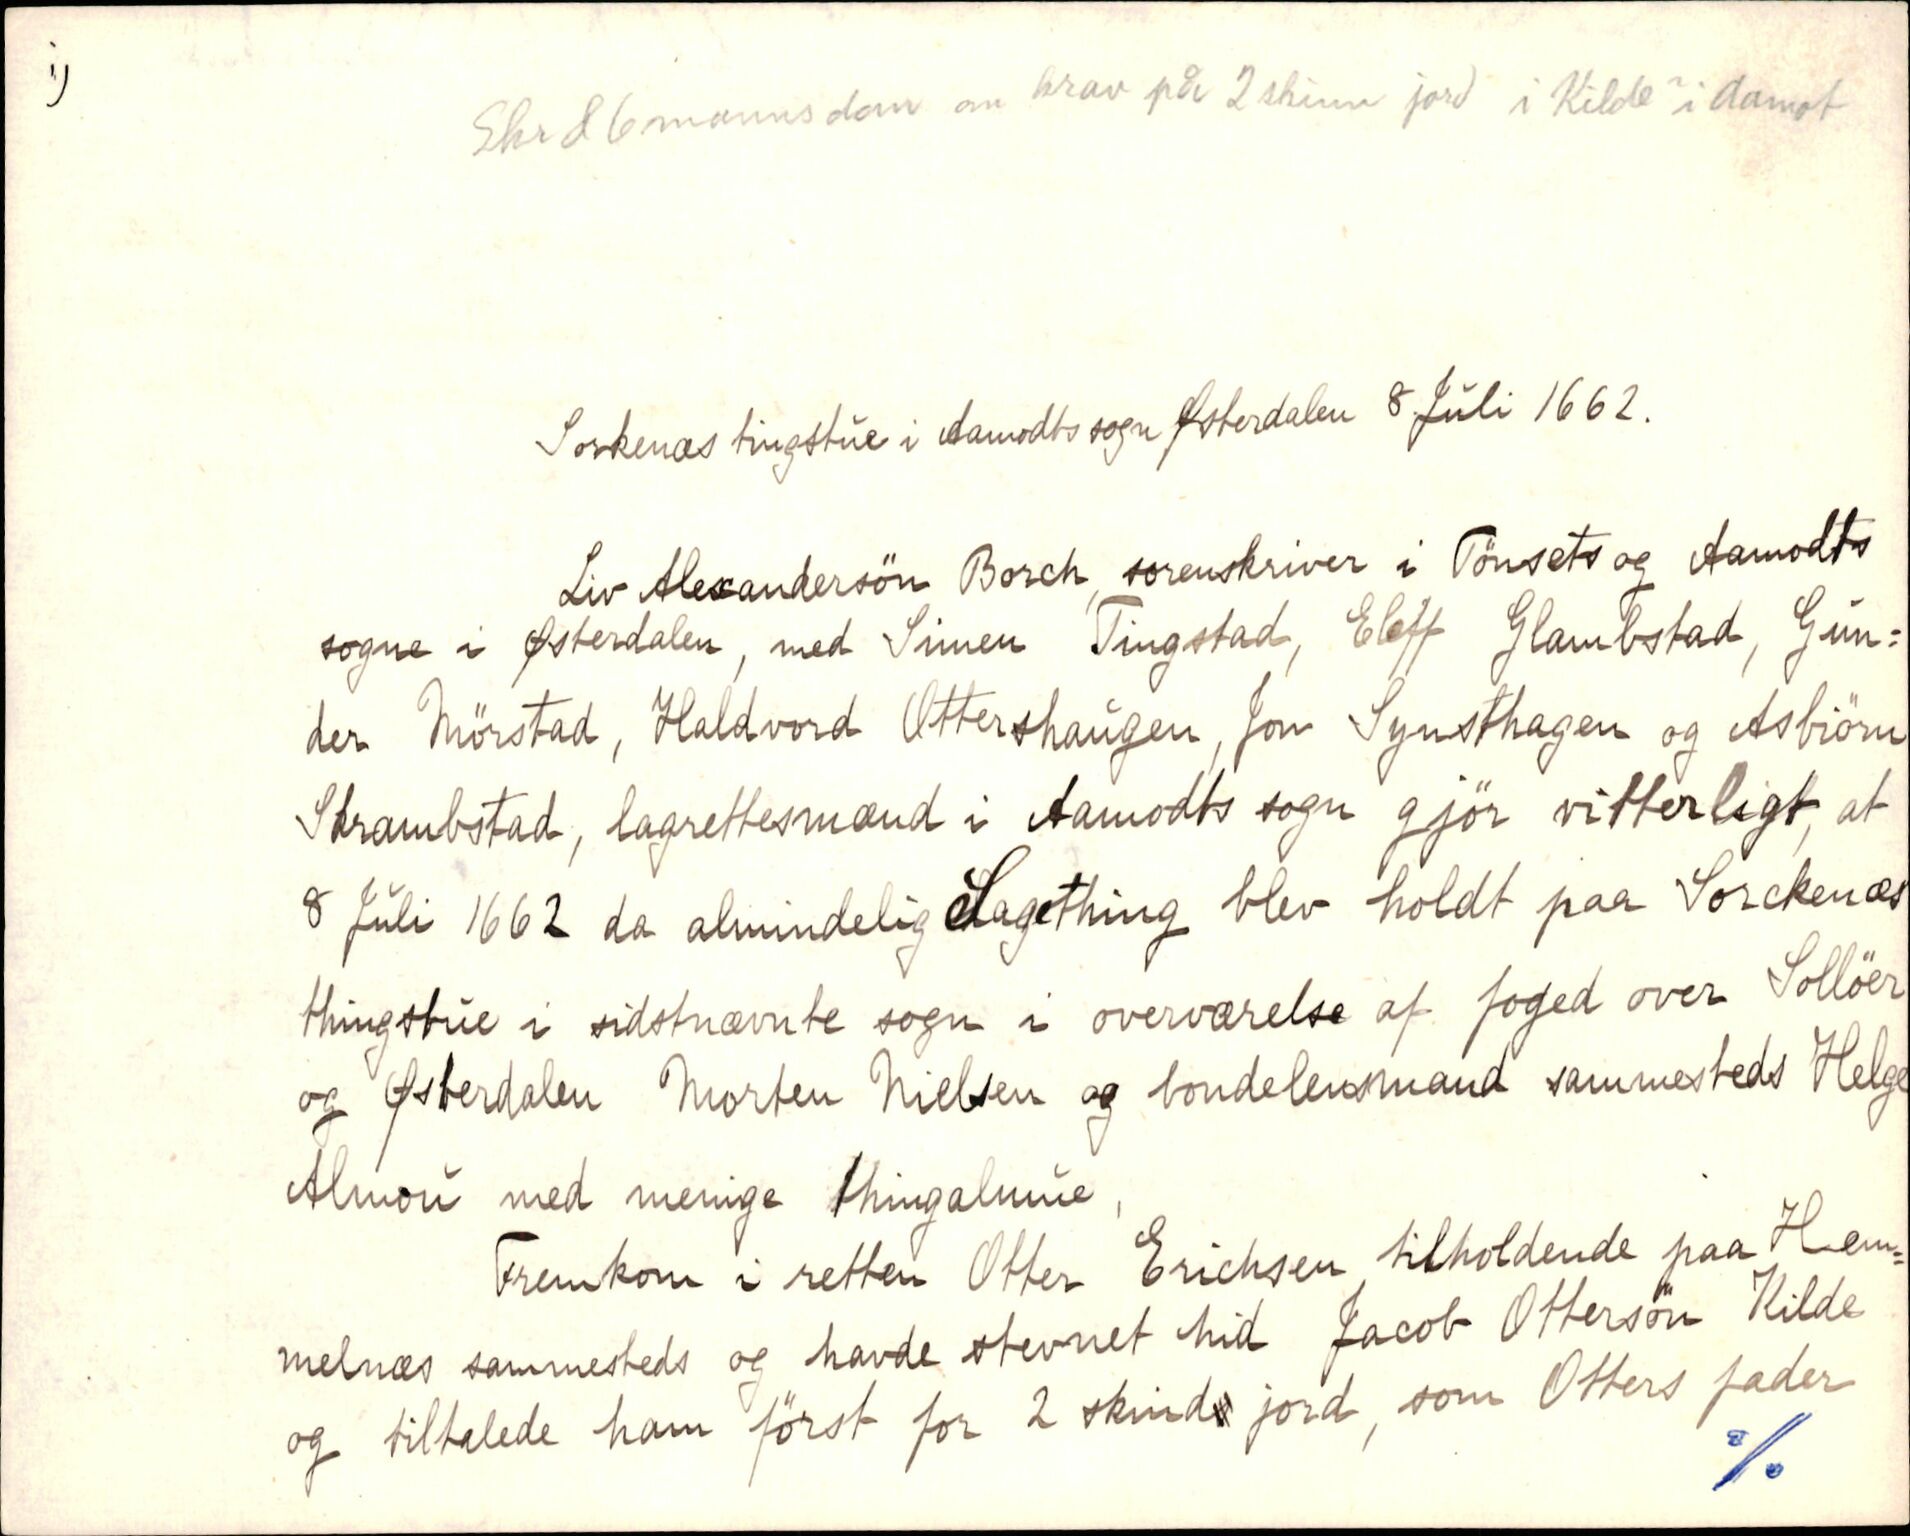 1)
Skr & 6 mannsdom om krav på 2 skinn jord i Kilde i Aamot
Sorkenæs tingstue i Aamodts sogn Østerdalen 8 Juli 1662.
Liv Alexandersön Borch, sorenskriver i Tönsets og Aamodts
sogne i Østerdalen, med Simen Tingstad, Eleff Glambstad, Gun=
der Mörstad, Haldvord Ottershaugen, Jon Synsthagen og Asbiörn
Skrambstad, lagrettesmænd i Aamodts sogn gjör vitterligt, at
8 Juli 1662 da almindelig Lagething blev holdt paa Sorckenæs
thingstue i sidstnævnte sogn i overværelse af foged over Sollöer
og Østerdalen Morten Nielsen og bondelensmand sammesteds Helge
Almou med menige thingalmue,
Fremkom i retten Otter Erichsen tilholdende paa Hem=
melnæs sammesteds og havde stevnet hid Jacob Ottersön Kilde
og tiltalede ham först for 2 skind jord, som Otters fader
%